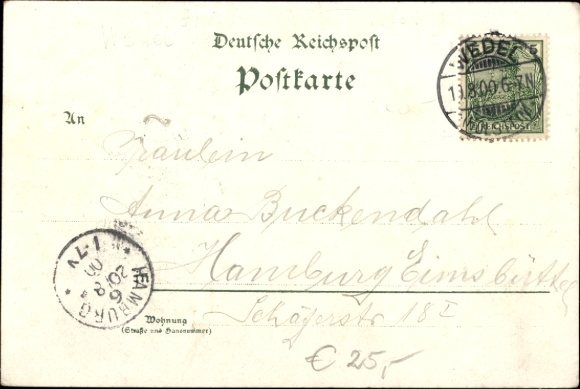 Deutsche Reichspost
Postkarte
WEDEL
19.8.00.6-7N
(HOLSTEIN)
REICHSPOST
5
An
Fräulein
Anna Buckendahl
Hamburg Eimsbüttel
Schäferstr 18 I
Wohnung
(Straße und Hausnummer)
HAMBURG
6
20/8
00
1-7V
€ 25,-